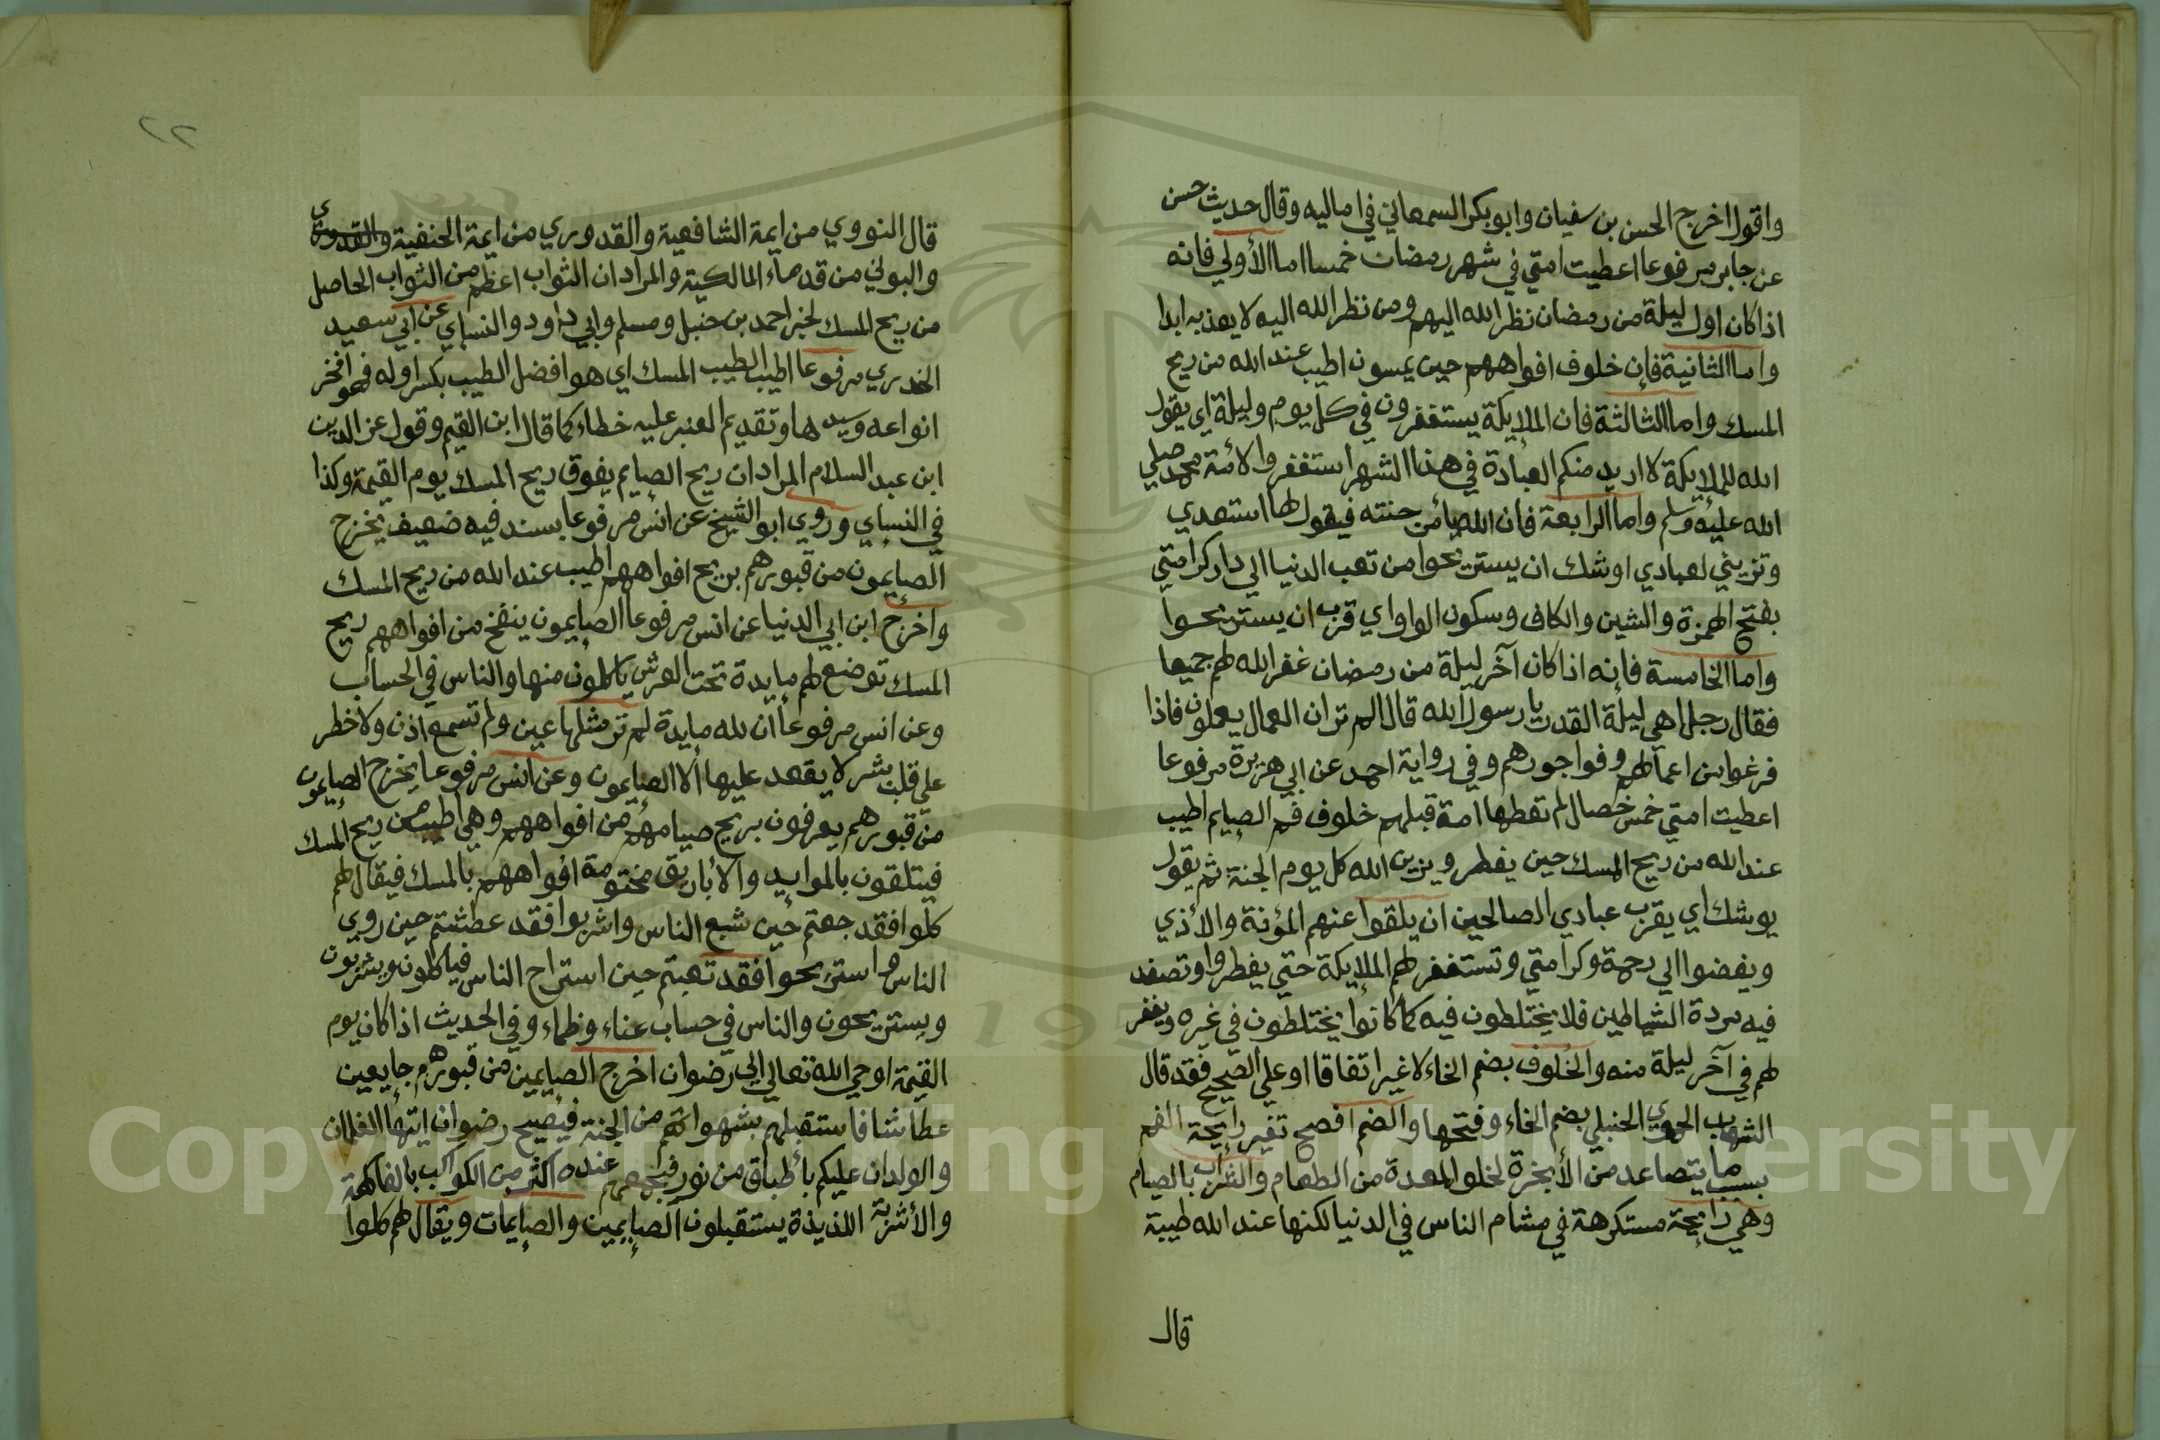 واقول اخرج الحسن بن سفيان وابو بكر السمعاني في اماليه وقال حديث حسن
عن جابر مرفوعا اعطيت امتي في شهر رمضان خمسا اما الأولي فانه
اذا كان اول ليلة من رمضان نظر الله اليهم ومن نظر الله اليه لا يعذبه ابدا
واما الثانية فإن خلوف افواههم حين يمسون اطيب عند الله من ريح
المسك واما الثالثة فان الملايكة يستغفرون في كل يوم وليلة اي يقول
الله للملايكة لا اريد منكم العبادة في هذا الشهر استغفروا لأمة محمد صلي
الله عليه وسلم واما الرابعة فان الله يأمر جنته فيقول لها استعدي
وتزيني لعبادي اوشك ان يستريحوا من تعب الدنيا الي دار كرامتي
بفتح الهمزة والشين والكاف وسكون الواو اي قرب ان يستريحوا
واما الخامسة فإنه اذا كان آخر ليلة من رمضان غفر الله لهم جميعا
فقال رجل اهي ليلة القدر يا رسول الله قال الم تر ان العمال يعملون فاذا
فرغوا من اعمالهم وفوا اجورهم وفي رواية احمد عن ابي هريرة مرفوعا
اعطيت امتي خمس خصال لم تعطها امة قبلهم خلوف فم الصايم اطيب
عند الله من ريح المسك حين يفطر ويزين الله كل يوم الجنة ثم يقول
يوشك اي يقرب عبادي الصالحين ان يلقوا عنهم المؤنة والأذي
ويفضوا الي رحمة وكرامتي وتستغفر لهم الملايكة حتي يفطروا وتصفد
فيه مردة الشياطين فلا يختلطون فيه كما كانوا يختلطون في غيره ويغفر
لهم في آخر ليلة منه والخلوف بضم الخاء لا غير اتفاقا او علي الصحيح فقد قال
الشهاب الحموي الحنبلي بضم الخاء وفتحها والضم افصح تغير رايحة الفم
بسبب ما يتصاعد من الأبخرة لخلو المعدة من الطعام والشرب بالصيام
وهي رايحة مستكرهة في مشام الناس في الدنيا لكنها عند الله طيبة
قال
٢٢
قال النووي من ايمة الشافعية والقدوري من ايمة الحنفية والقدوري
والبوني من قدماء المالكية والمراد ان الثواب اعظم من الثواب الحاصل
من ريح المسك لخبر احمد بن حنبل ومسلم وابي داود والنساي عن ابي سعيد
الخدري مرفوعا اطيب الطيب المسك اي هو افضل الطيب بكسر اوله فهو افخر
انواعه وسيدها وتقديم العنبر عليه خطاء كما قال ابن القيم وقول عز الدين
ابن عبد السلام المراد ان ريح الصايم يفوق ريح المسك يوم القيمة وكذا
في النساي وروي ابو الشيخ عن انس مرفوعا بسند فيه ضعيف يخرج
الصايمون من قبورهم بريح افواههم اطيب عند الله من ريح المسك
واخرج ابن ابي الدنيا عن انس مرفوعا الصايمون ينفخ من افواههم ريح
المسك توضع لهم مايدة تحت العرش ياكلون منها والناس في الحساب
وعن انس مرفوعا ان لله مايدة لم تر مثلها عين ولم تسمع اذن ولا خطر
علي قلب بشر لا يقعد عليها ألا الصايمون وعن انس مرفوعا يخرج الصايمون
من قبورهم يعرفون بريح صيامهم من افواههم وهي اطيب من ريح المسك
فيتلقون بالموايد والأباريق مختومة افواههم بالمسك فيقال لهم
كلوا فقد جعتم حين شبع الناس واشربوا فقد عطشتم حين روي
الناس واستريحوا فقد تعبتم حين استراح الناس فياكلون ويشربون
ويستريحون والناس في حساب عناء وظماء وفي الحديث اذا كان يوم
القيمة اوحي الله تعالي الي رضوان اخرج الصايمين من قبورهم جايعين
عطاشا فاستقبلهم بشهواتهم من الجنة فيصيح رضوان ايتها الغلمان
والولدان عليكم بأطباق من نور فيجمع عنده اكثر من الكواكب بالفاكهة
والأشربة اللذيذة يستقبلون الصايمين والصايمات ويقال لهم كلوا
Copyright © King Saud University
195